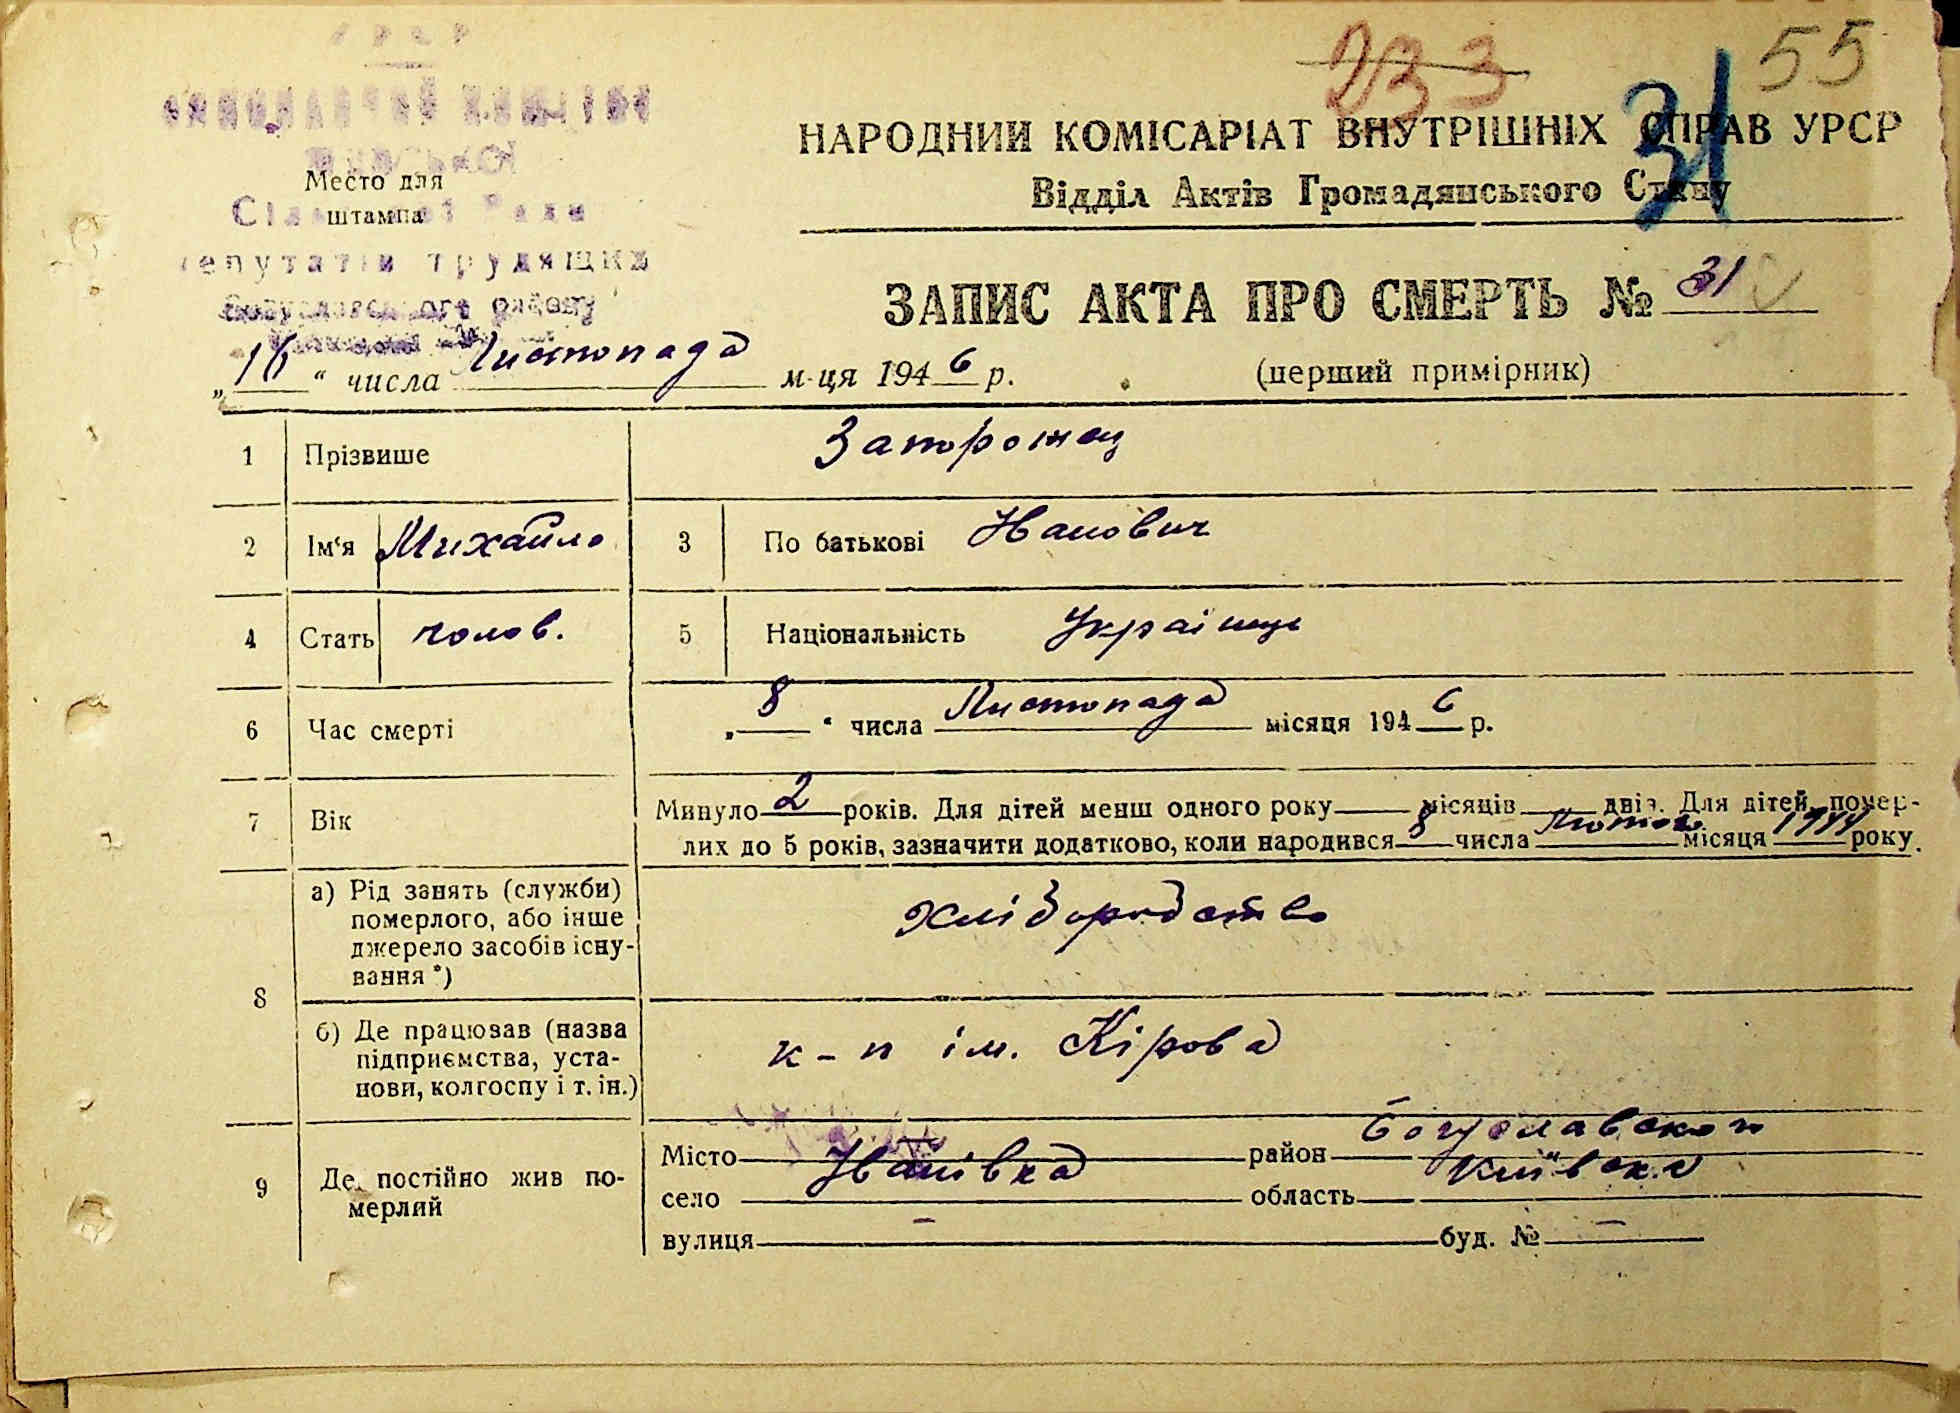 233 55
31
НАРОДНИЙ КОМІСАРІАТ ВНУТРІШНІХ СПРАВ УРСР
Відділ Актів Громадянського Стану
УРСР
Место для
штампа
Сільської Ради
депутатів трудящих
Богуславського району
ЗАПИС АКТА ПРО СМЕРТЬ № 31
„16“ числа Листопада м-ця 1946 р. (перший примірник)
1 Прізвише Запорожец
2 Ім'я Михайло 3 По батькові Іванович
4 Стать чолов. 5 Національність Українець
6 Час смерті „8“ числа Листопада місяця 1946 р.
7 Вік Минуло 2 років. Для дітей менш одного року місяців днів. Для дітей, помер-
лих до 5 років, зазначити додатково, коли народився 8 числа Лютого місяця 1944 року.
8 а) Рід занять (служби)
померлого, або інше
джерело засобів існу-
вання *)
хліборобство
б) Де працював (назва
підприємства, уста-
нови, колгоспу і т. ін.)
к-п ім. Кірова
9 Де постійно жив по-
мерлий
Місто район Богуславского
село Іванівка область Київска
вулиця – буд. № –